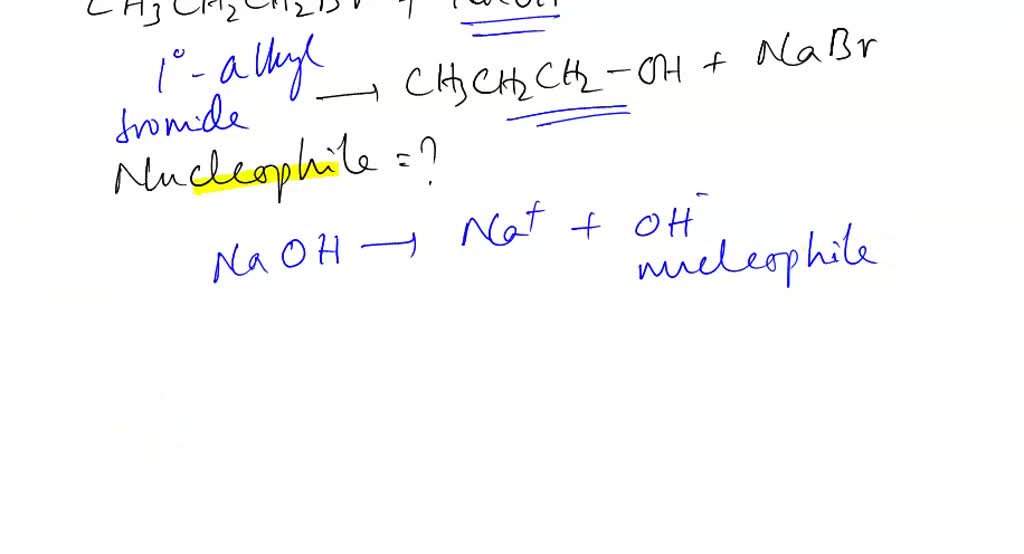 CH3CH2CH2Br + NaOH
1°-alkyl
bromide
→ CH3CH2CH2-OH + NaBr
Nucleophile = ?
NaOH → Na+ + OH-
nucleophile